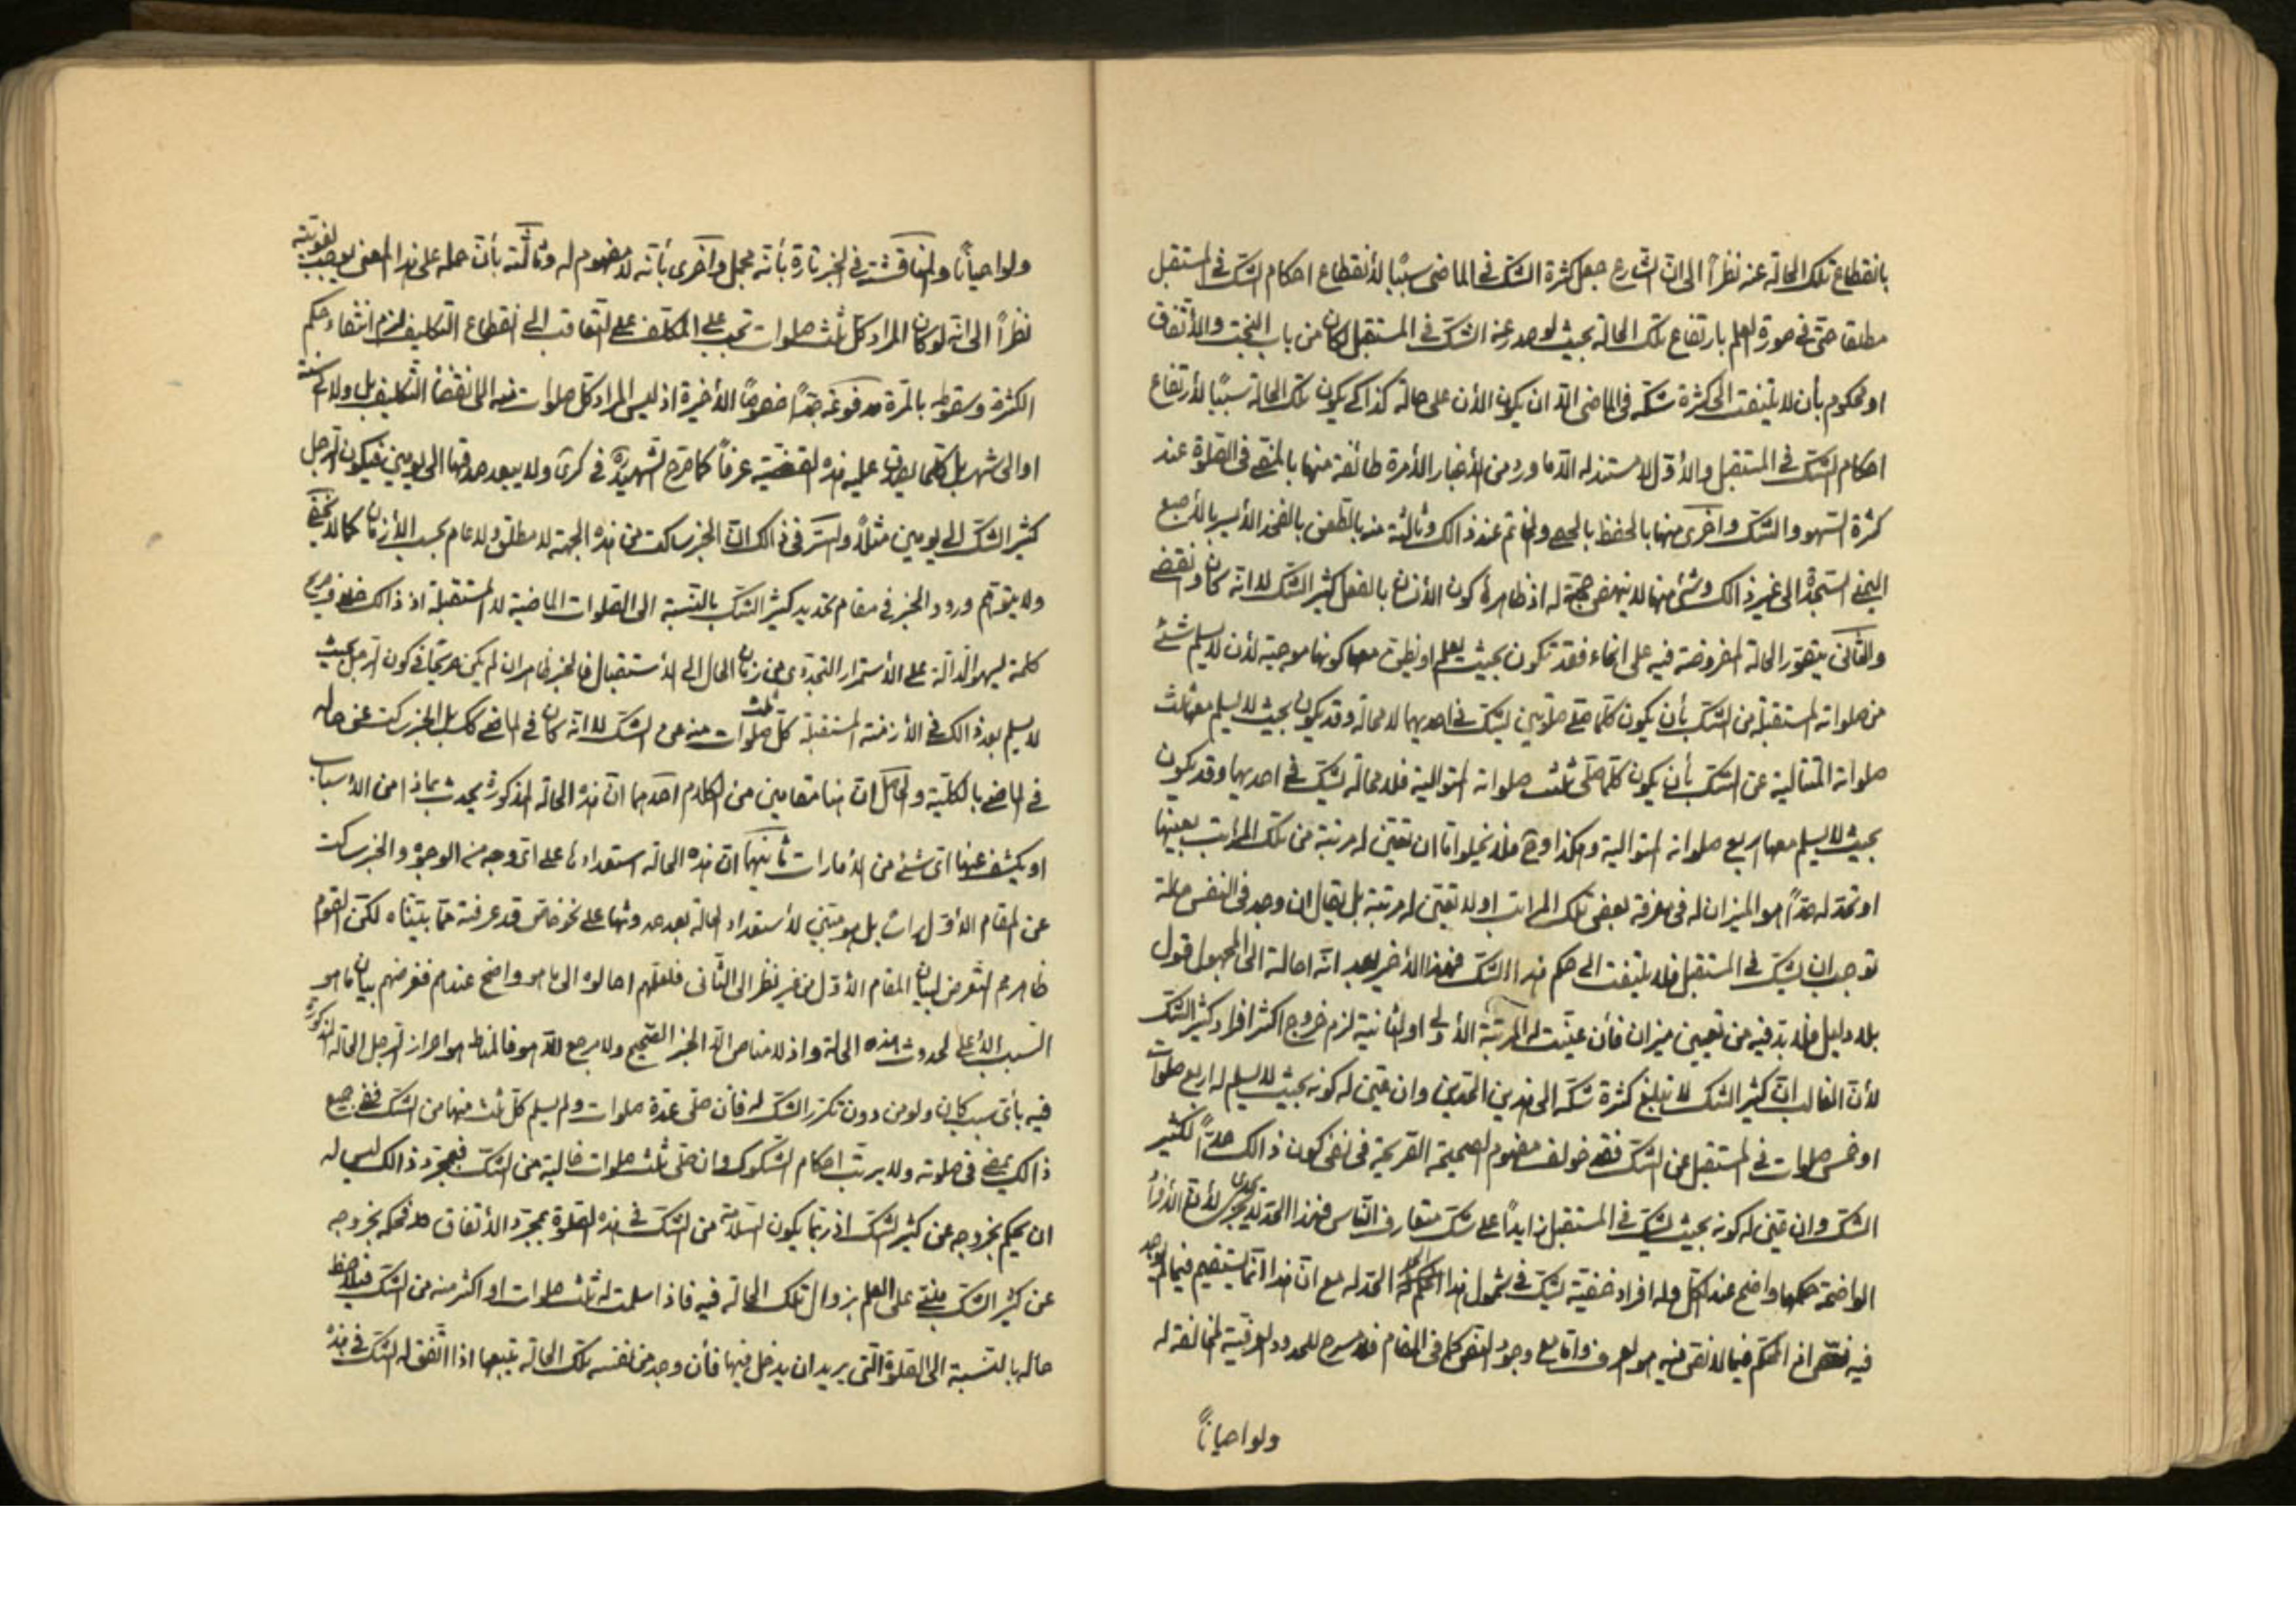 بانقطاع تلك الحالة عنه نظراً الى انّ الشارع جعل كثرة الشك في الماضي سبباً لانقطاع احكام الشك في المستقبل
مطلقا حتى في صورة العلم بارتفاع تلك الحالة بحيث لو صدر عنه الشك في المستقبل لكان من باب البخت والاتفاق
او محكوم بأن لا يلتفت الى كثرة شكه في الماضي الا ان يكون الأن على حالة كذا كي يكون تلك الحالة سبباً لارتفاع
احكام الشك في المستقبل والأول لا مستند له الا ما ورد من الأخبار الأمرة طائفة منها بالمضي في الصلوة عند
كثرة السهو والشك واخرى منها بالحفظ بالحصى والخاتم عند ذالك وثالثة منه بالطعن بالفخذ الأيسر بالأصبع
اليمنى المسبحة الى غير ذالك وشئ منها لا ينهض حجة له اذ ظاهره كون الأنسان بالفعل كثير الشك لا انه كان وانقضى
والثاني يتصور الحالة المفروضة فيه على انحاء فقد تكون بحيث يعلم او يظن معها كونها موجبة لأن لا يسلم شئ
من صلواته المستقبلة من الشك بأن يكون كلما صلى صلوتين ليشك في احديهما لا محالة وقد يكون بحيث لا يسلم معها ثلث
صلواته المتتالية عن الشك بأن يكون كلما صلى ثلث صلواته المتوالية فلا محالة يشك في احديها وقد يكون
بحيث لا يسلم معها اربع صلواته المتوالية وهكذا وح فلا يخلو اما ان تعين له مرتبة من تلك المراتب بعينها
او تحد له حداً هو الميزان له في معرفة بعض تلك المراتب او لا تعين له مرتبة بل يقال ان وجد في النفس حالة
توجب ان يشك في المستقبل فلا يلتفت الى حكم هذا الشك فهذا الأخير بعد انه احالة الى المجهول قول
بلا دليل فلا بد فيه من تعيين ميزان فأن عينت له المرتبة الأولى او الثانية لزم خروج اكثر افراد كثير الشك
لأن الغالب ان كثير الشك لا يبلغ كثرة شكه الى هذين الحدين وان عين له كونه بحيث لا يسلم له اربع صلوات
او خمس صلوات في المستقبل عن الشك فقد خولف مفهوم الصحيحة الصريحة في نفي كون ذالك حداً لكثير
الشك وان عين له كونه بحيث يشك في المستقبل زايداً على شك متعارف الناس فهذا الحد لا يجدى لأن الأفراد
الواضحة حكمها واضح عند الكل وله افراد خفية يشك في شمول هذا الحد له مع ان هذا انما يستقيم فيما لم يوجد
فيه نص اذ الحكم فيما لا نص فيه هو العرف واما مع وجود النص كما في المقام فلا مسرح للحدود العرفية لمخالفته له
ولو احياناً
ولو احياناً والمناقشة في الخبر تارة بأنه مجمل واخرى بأنه لا مفهوم له وثالثة بأن حمله على هذا المعنى يوجب لغويته
نظراً الى انه لو كان المراد كل ثلث صلوات تجب على المكلف على التعاقب الى انقطاع التكليف لزم انتفاء حكم
الكثرة وسقوطه بالمرة مدفوعة جداً خصوصاً الأخيرة اذ ليس المراد كل صلوات منه الى انقضاء التكليف بل ولا الى سنة
او الى شهر بل كلما يصدق عليه هذه القضية عرفاً كما صرح الشهيد في كرى ولا يبعد صدقها الى يومين فيكون الرجل
كثير الشك الى يومين مثلاً والسر في ذالك ان الخبر ساكت من هذه الجهة لا مطلق ولا عام بحسب الأزمان كما لا يخفى
ولا يتوهم ورود الخبر في مقام تحديد كثير الشك بالنسبة الى الصلوات الماضية لا المستقبلة اذ ذالك خلاف صريح
كلمة يسهو الدالة على الأستمرار التجددى من زمان الحال الى الأستقبال فالخبر ظاهر ان لم يكن صريحاً في كون الرجل بحيث
لا يسلم بعد ذالك في الأزمنة المستقبلة كل ثلث صلوات منه من الشك لا انه كان في الماضي كك بل الخبر ساكت عن حاله
في الماضي بالكلية والحاصل ان هنا مقامين من الكلام احدهما ان هذه الحالة المذكورة يحدث بماذا من الأسباب
او يكشف عنها اى شئ من الأمارات ثانيهما ان هذه الحالة استعدادها على اى وجه من الوجوه والخبر ساكت
عن المقام الأول رأساً بل هو مبتني لأستعداد الحالة بعد حدوثها على نحو خاص قد عرفته مما بيناه لكن القوم
ظاهرهم التعرض لبيان المقام الأول من غير نظر الى الثاني فلعلهم احالوه الى ما هو واضح عندهم فغرضهم بيان ما هو
السبب الأعلى لحدوث هذه الحالة واذ لا مناص الا الخبر الصحيح ولا مرجع الا هو فالمناط هو احراز الرجل الحالة المذكورة
فيه بأى سبب كان ولو من دون تكرر الشك له فأن صلى عدة صلوات ولم يسلم كل ثلث منها من الشك ففي جميع
ذالك يمضى في صلوته ولا يرتب احكام الشكوك وان صلى ثلث صلوات خالية من الشك فبمجرد ذالك ليس له
ان يحكم بخروجه عن كثير الشك اذ ربما يكون السلامة من الشك في هذه الصلوة بمجرد الأتفاق فحكمه بخروجه
عن كثير الشك مبتنى على العلم بزوال تلك الحالة فيه فاذا سلمت له ثلث صلوات او اكثر منه من الشك فيلاحظ
حاله بالنسبة الى الصلوة التي يريد ان يدخل فيها فأن وجد من نفسه تلك الحالة يتبعها اذا اتفق له الشك في هذه